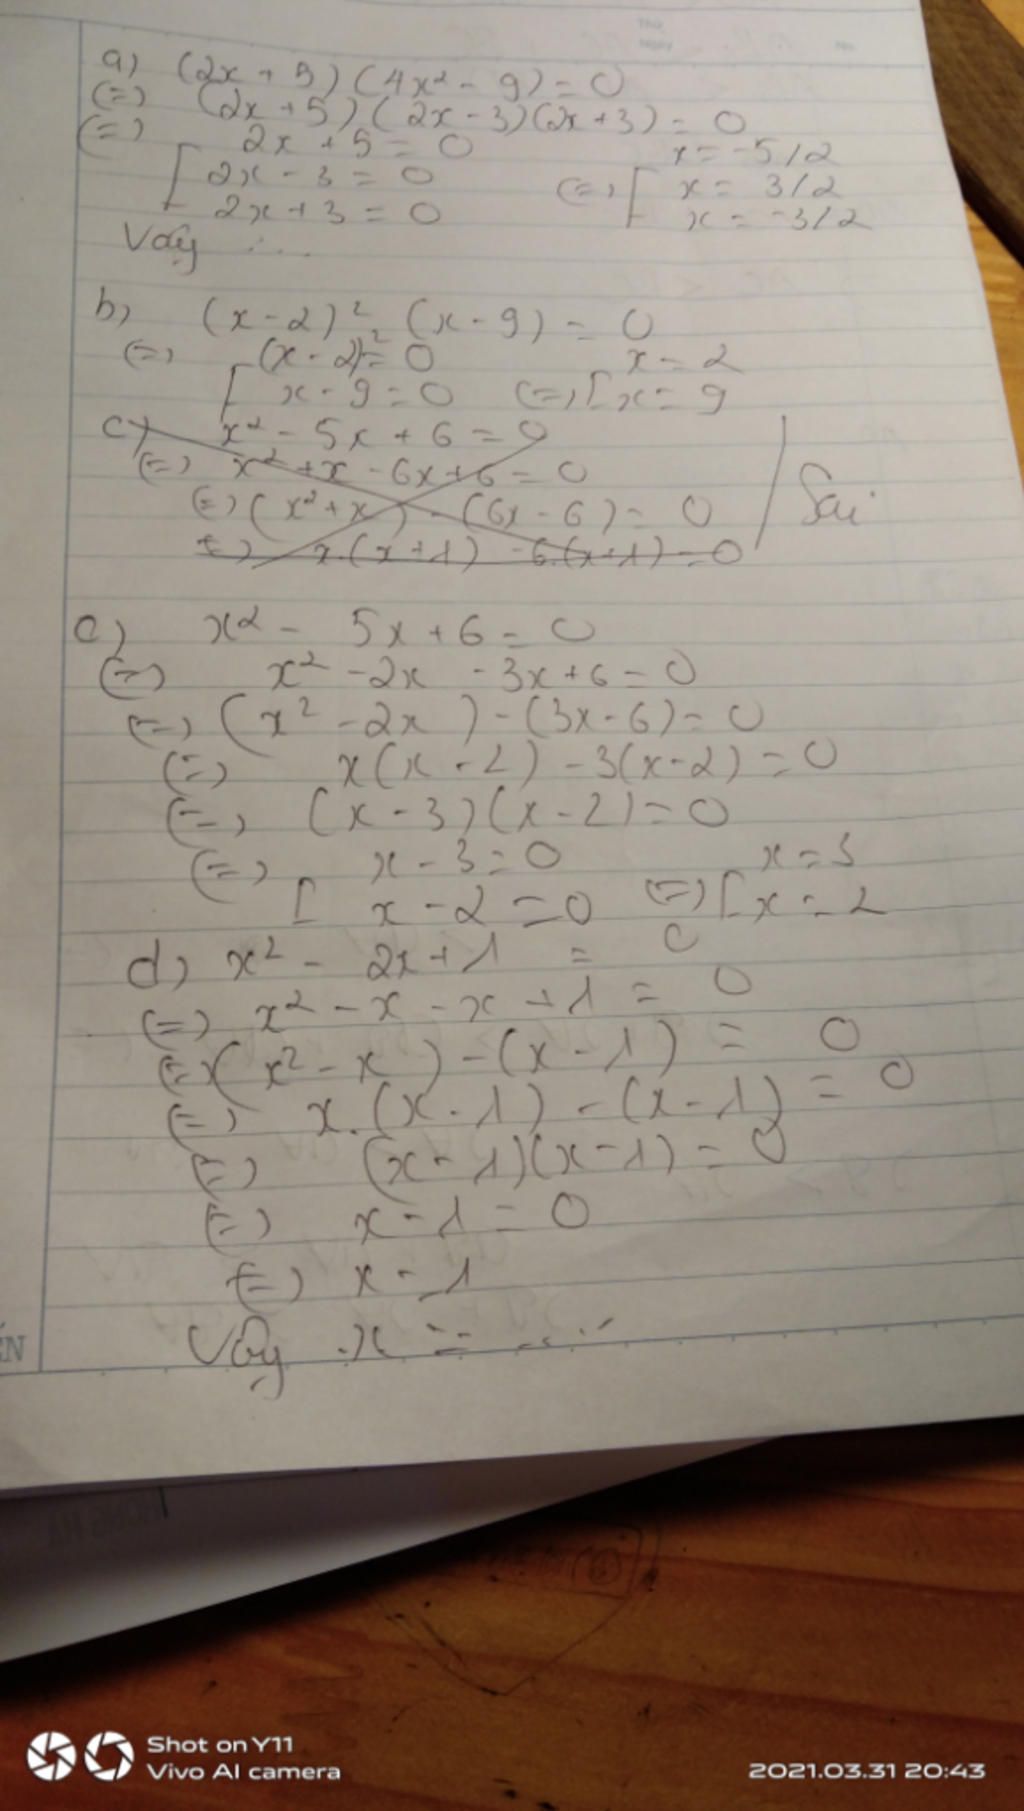 a) (2x + 5) (4x² - 9) = 0
(=) (2x + 5) (2x - 3)(2x + 3) = 0
(=) [ 2x + 5 = 0 x = -5/2
2x - 3 = 0 (=) [ x = 3/2
2x + 3 = 0 x = -3/2
Vậy ....
b) (x - 2)² (x - 9) = 0
(=) (x - 2)² = 0 x = 2
[ x - 9 = 0 (=) [ x = 9
c) x² - 5x + 6 = 0
(=) x² + x - 6x + 6 = 0
(=) (x² + x) - (6x - 6) = 0 / Sai
(=) x.(x + 1) - 6.(x + 1) = 0
c) x² - 5x + 6 = 0
(=) x² - 2x - 3x + 6 = 0
(=) (x² - 2x) - (3x - 6) = 0
(=) x(x - 2) - 3(x - 2) = 0
(=) (x - 3)(x - 2) = 0
(=) x - 3 = 0 x = 3
[ x - 2 = 0 (=) [ x = 2
d) x² - 2x + 1 = 0
(=) x² - x - x + 1 = 0
(=) (x² - x) - (x - 1) = 0
(=) x.(x - 1) - (x - 1) = 0
(=) (x - 1)(x - 1) = 0
(=) x - 1 = 0
(=) x = 1
Vậy x = ....
Shot on Y11
Vivo AI camera
2021.03.31 20:43